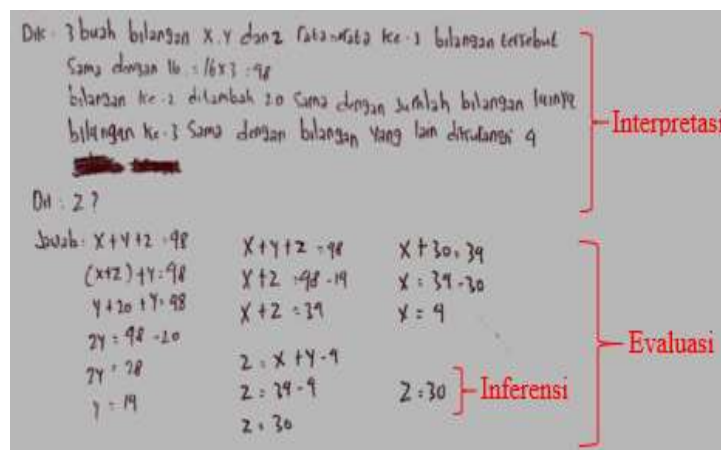 Dik : 3 buah bilangan X.Y dan z rata-rata ke-3 bilangan tersebut
Sama dengan 16 = 16x3 = 48
bilangan ke-2 ditambah 20 sama dengan jumlah bilangan lainya
bilangan ke-3 sama dengan bilangan yang lain dikurangi 4
Interpretasi
Dit : Z ?
Jawab : X+Y+Z = 48
(x+z)+Y = 48
Y+20+Y = 48
2Y = 48-20
2Y = 28
Y = 14
X+Y+Z = 48
X+Z = 48-14
X+Z = 34
Z = X+Y-4
Z = 34-4
Z = 30
X+30 = 34
X = 34-30
X = 4
Z = 30
Inferensi
Evaluasi